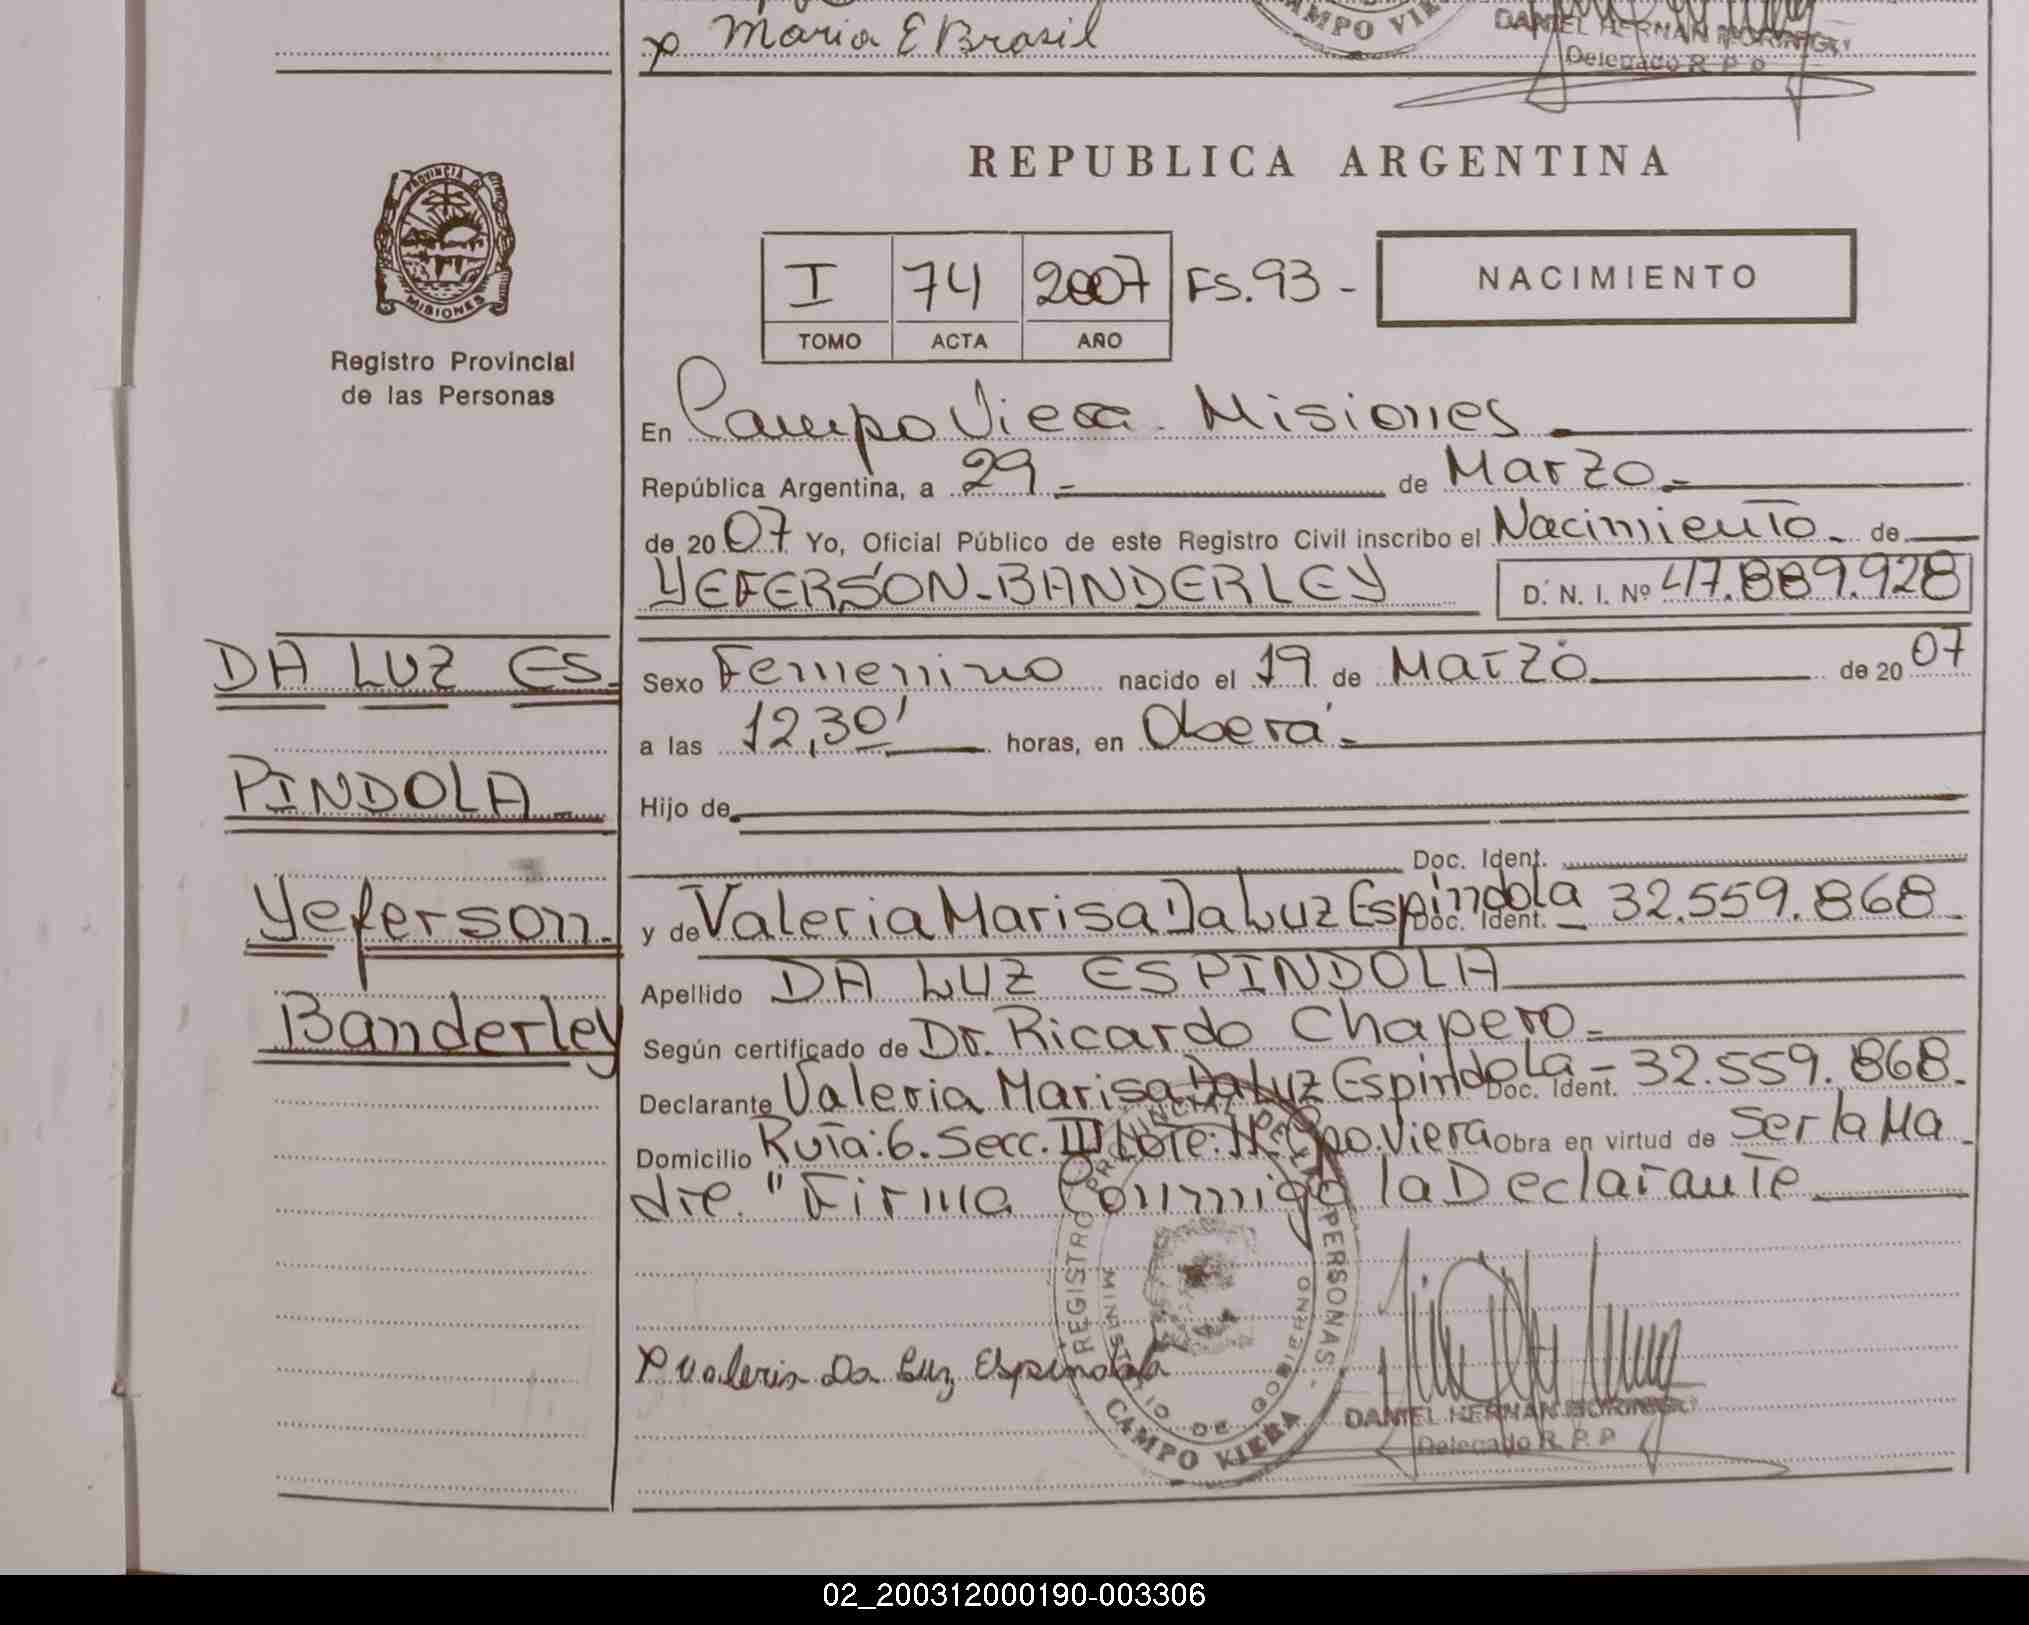 x Maria E Brasil
CAMPO VIE
DANIEL HERNAN
Delegado R. P. P.
PROVINCIA DE
MISIONES
Registro Provincial
de las Personas
REPUBLICA ARGENTINA
I 74 2007 FS. 93 -
TOMO ACTA AÑO
NACIMIENTO
En Campo Viera. Misiones
República Argentina, a 29 - de Marzo -
de 2007 Yo, Oficial Público de este Registro Civil inscribo el Nacimiento de
YEFERSON-BANDERLEY D. N. I. Nº 47.889.928
DA LUZ ES-
PINDOLA
Yeferson
Banderley
Sexo Femenino nacido el 19 de Marzo de 2007
a las 12,30' horas, en Oberá -
Hijo de
Doc. Ident.
y de Valeria Marisa Da Luz Espindola Doc. Ident. 32.559.868 -
Apellido DA LUZ ESPINDOLA
Según certificado de Dr. Ricardo Chapero -
Declarante Valeria Marisa Da Luz Espindola - Doc. Ident. 32.559.868 -
Domicilio Ruta: 6. Secc. III Lote: Cpo. Viera Obra en virtud de Ser la Ma
dre. " Firma Conmigo la Declarante
x Valeria Da Luz Espindola
REGISTRO PROVINCIAL DE LAS PERSONAS -
MINISTERIO DE GOBIERNO
CAMPO VIERA
DANIEL HERNAN
Delegado R. P. P.
02_200312000190-003306